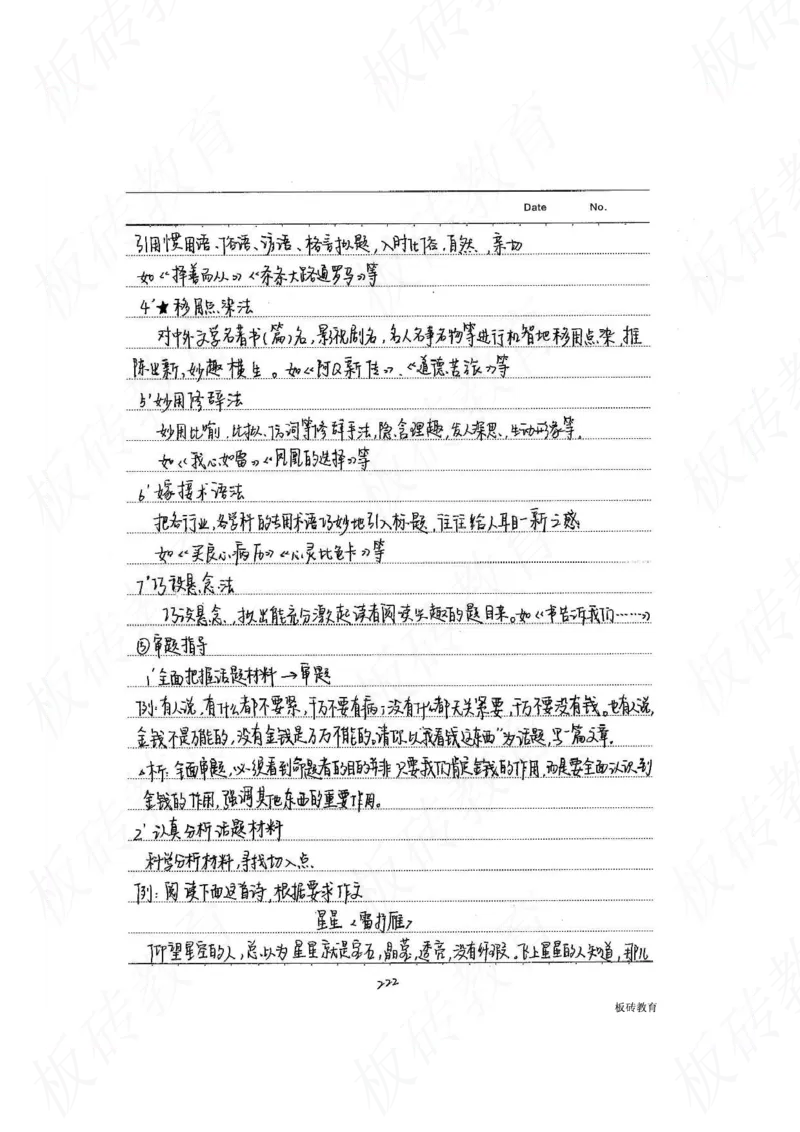 Date No.
引用惯用语、俗语、谚语、格言拟题,入时比俗,自然,亲切
如《择善而从》《条条大路通罗马》等
4'★移用点染法
对中外文学名著书(篇)名,影视剧名,名人名事名物等进行机智地移用点染,推
陈出新,妙趣横生。如《阿Q新传》、《道德苦旅》等
5'妙用修辞法
妙用比喻、比拟、仿词等修辞手法,隐含理趣,发人深思,生动形象等。
如《我心如雷》《凤凰的选择》等
6'嫁接术语法
把各行业,各学科的专用术语巧妙地引入标题,往往给人耳目一新之感
如《买良心病历》《心灵比色卡》等
7'巧设悬念法
巧设悬念,拟出能充分激起读者阅读兴趣的题目来。如《书告诉我们……》
⑤审题指导
1'全面把握话题材料→审题
例:有人说,有什么都不要紧,千万不要有病;没有什么都无关紧要,千万不要没有钱。也有人说,
金钱不是万能的,没有金钱是万万不能的。请你以“我看钱这东西”为话题,写一篇文章。
析:全面审题,必须看到命题者的目的并非只要我们肯定金钱的作用,而是要全面认识到
金钱的作用,强调其他东西的重要作用。
2'认真分析话题材料
科学分析材料,寻找切入点.
例:阅读下面这首诗,根据要求作文
星星《雷抒雁》
仰望星空的人,总以为星星就是宝石,晶莹,透亮,没有纤瑕。飞上星星的人知道,那儿
222
板砖教育